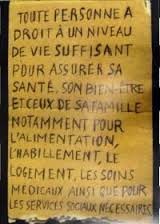 TOUTE PERSONNE A
DROIT À UN NIVEAU
DE VIE SUFFISANT
POUR ASSURER SA
SANTÉ, SON BIEN-ÊTRE
ET CEUX DE SA FAMILLE
NOTAMMENT POUR
L'ALIMENTATION,
L'HABILLEMENT, LE
LOGEMENT, LES SOINS
MEDICAUX AINSI QUE POUR
LES SERVICES SOCIAUX NÉCESSAIRES